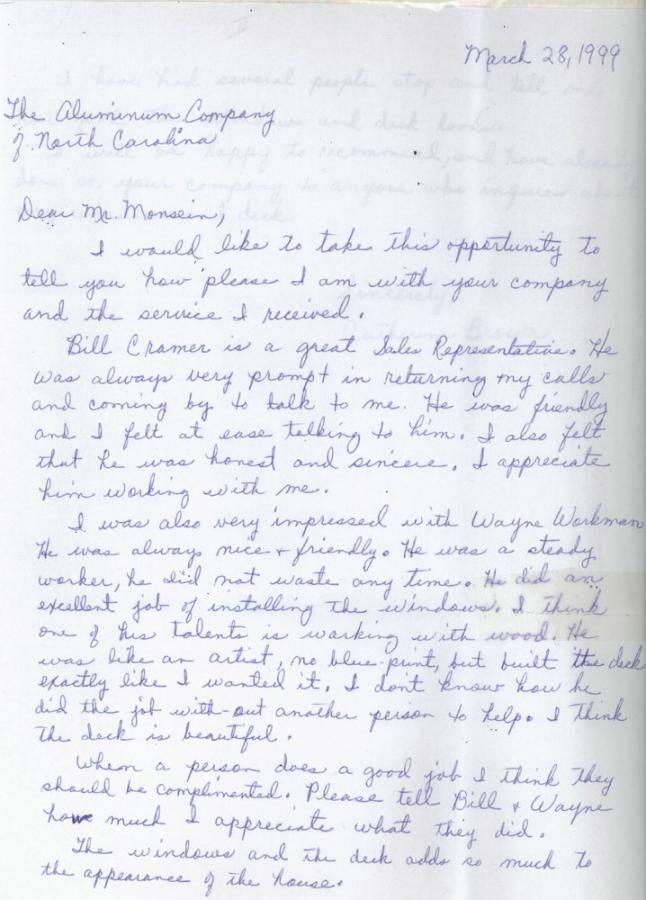 March 28, 1999
The Aluminum Company
of North Carolina
Dear Mr. Monsein,
I would like to take this opportunity to
tell you how please I am with your company
and the service I received.
Bill Cramer is a great Sales Representative. He
was always very prompt in returning my calls
and coming by to talk to me. He was friendly
and I felt at ease talking to him. I also felt
that he was honest and sincere. I appreciate
him working with me.
I was also very impressed with Wayne Workman
He was always nice + friendly. He was a steady
worker, he did not waste any time. He did an
excellent job of installing the windows. I think
one of his talents is working with wood. He
was like an artist, no blue-print, but built the deck
exactly like I wanted it. I don't know how he
did the job with-out another person to help. I think
the deck is beautiful.
When a person does a good job I think they
should be complimented. Please tell Bill + Wayne
how much I appreciate what they did.
The windows and the deck adds so much to
the appearance of the house.